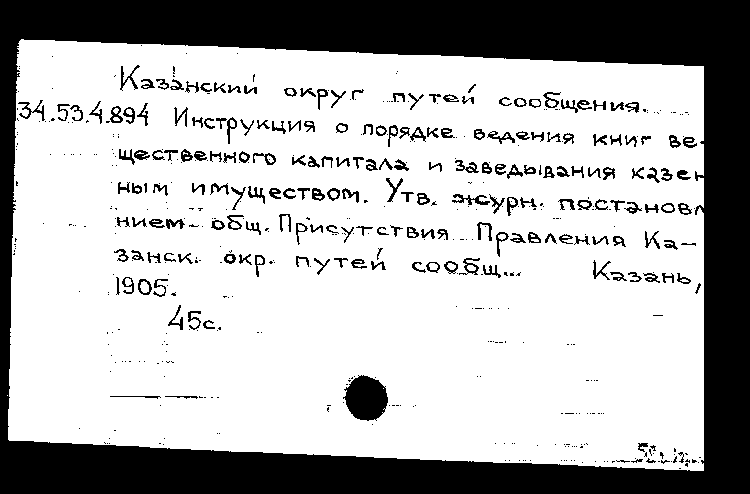 Казанский округ путей сообщения.
34.53.4.894 Инструкция о порядке ведения книг ве-
щественного капитала и заведывания казен
ным имуществом. Утв. журн. постановл
нием общ. Присутствия Правления Ка-
занск. окр. путей сообщ... Казань,
1905.
45с.